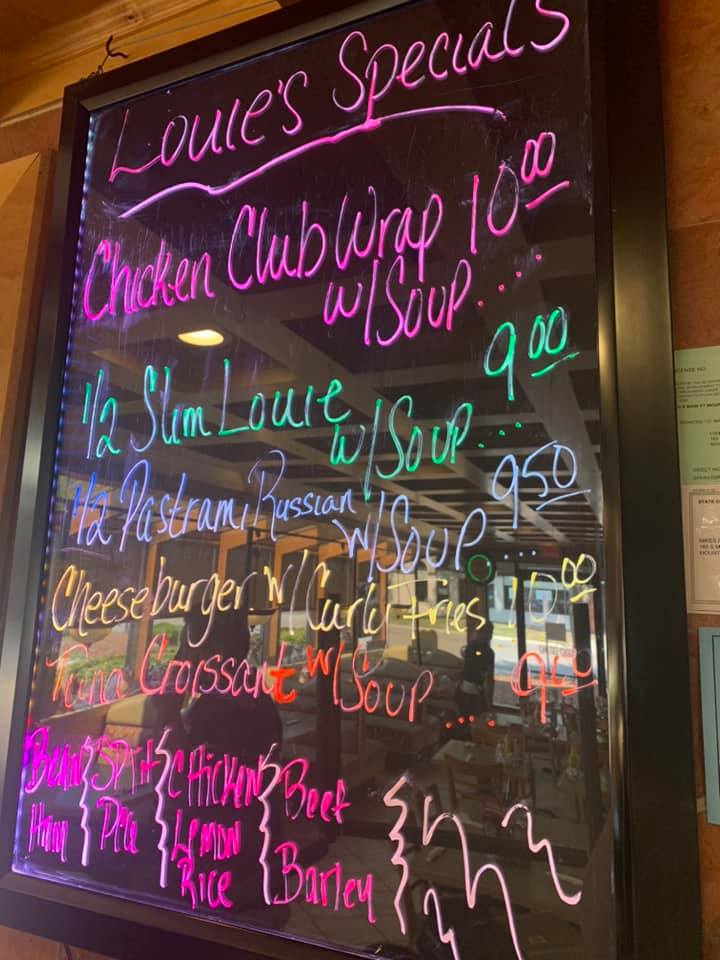 Louie's Specials
Chicken Club Wrap 10.00
w/ Soup....
1/2 Slim Louie w/ Soup... 9.00
1/2 Pastrami, Russian w/ Soup... 9.50
Cheeseburger w/ Curly Fries 10.00
Tuna Croissant w/ Soup....
Bean Split Chicken Beef
Ham Pea Lemon Barley
Rice